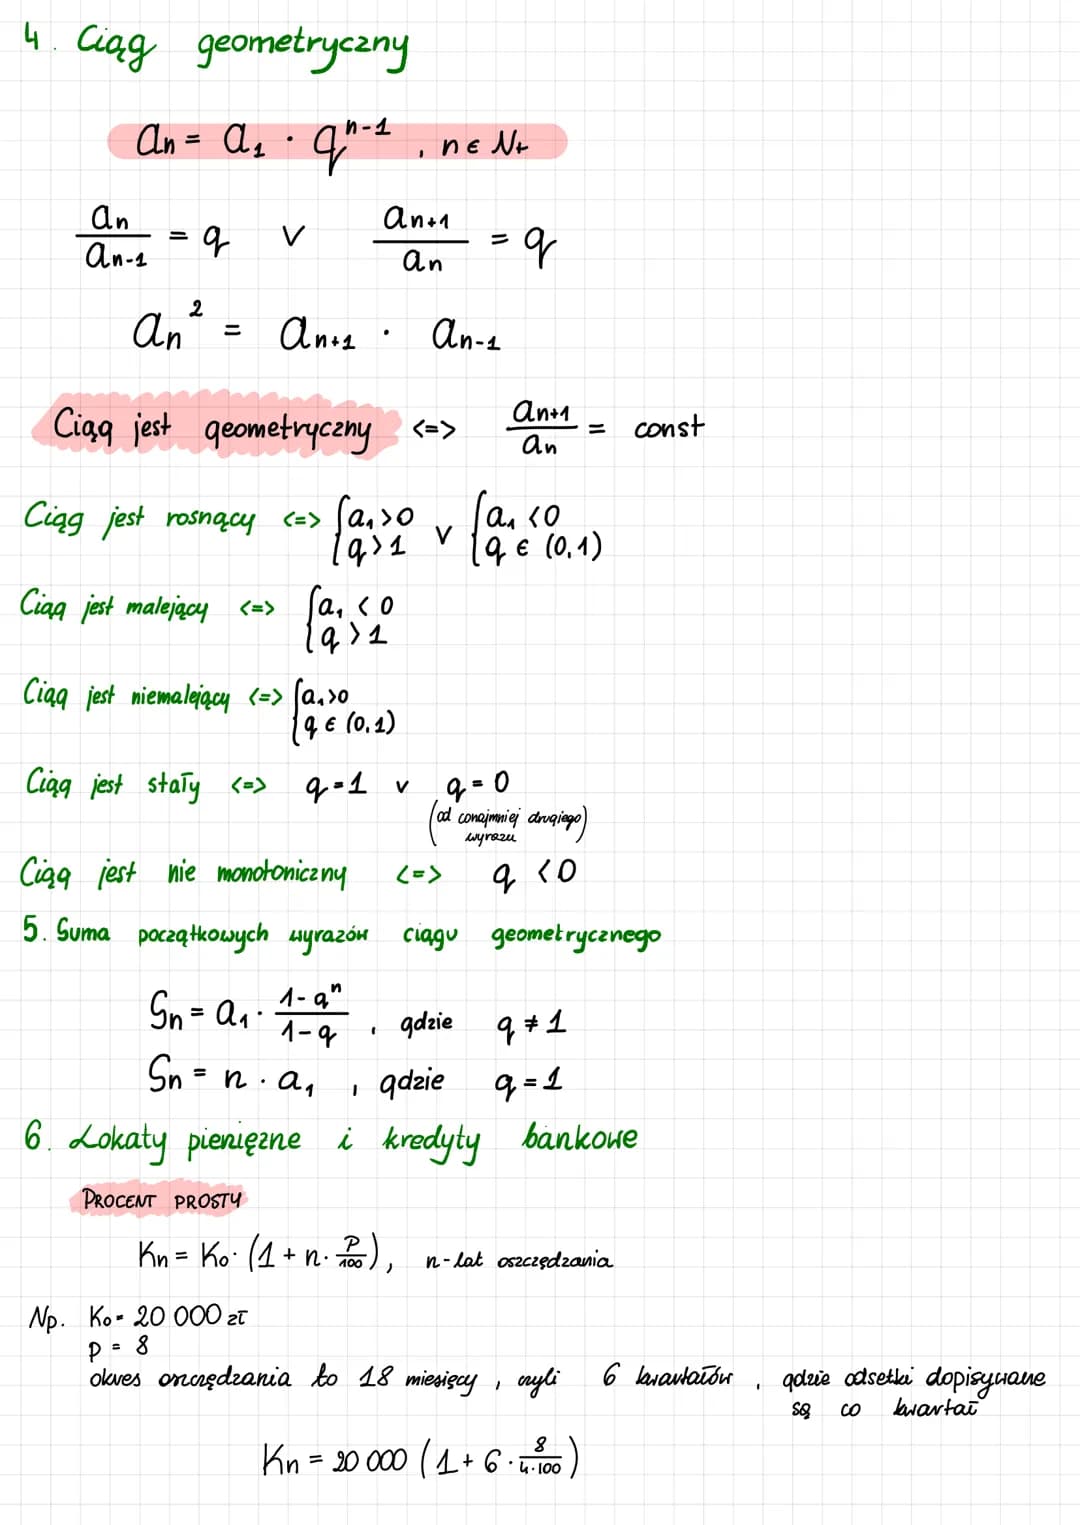 4. Ciąg geometryczny
an = a₁ · qⁿ⁻¹ , n ∈ N+
an/an-1 = q ∨ an+1/an = q
an² = an+1 · an-1
Ciąg jest geometryczny <=> an+1/an = const
Ciąg jest rosnący <=> {a₁>0 q>1 ∨ {a₁<0 q ∈ (0,1)
Ciąg jest malejący <=> {a₁<0 q>1
Ciąg jest niemalejący <=> {a₁>0 q ∈ (0,1)
Ciąg jest stały <=> q=1 ∨ q=0
(od conajmniej drugiego wyrazu)
Ciąg jest nie monotoniczny <=> q<0
5. Suma początkowych wyrazów ciągu geometrycznego
Sn = a₁ · (1-qⁿ)/(1-q) , gdzie q ≠ 1
Sn = n · a₁ , gdzie q = 1
6. Lokaty pieniężne i kredyty bankowe
PROCENT PROSTY
Kn = Ko · (1 + n · P/100), n-lat oszczędzania
Np. Ko = 20 000 zł
p = 8
okres oszczędzania to 18 miesięcy, czyli 6 kwartałów, gdzie odsetki dopisywane
są co kwartał
Kn = 20 000 (1 + 6 · 8/4·100)